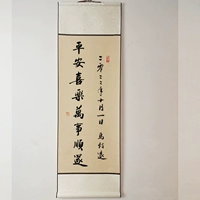 平安喜樂萬事順遂
二零二二年十月一日